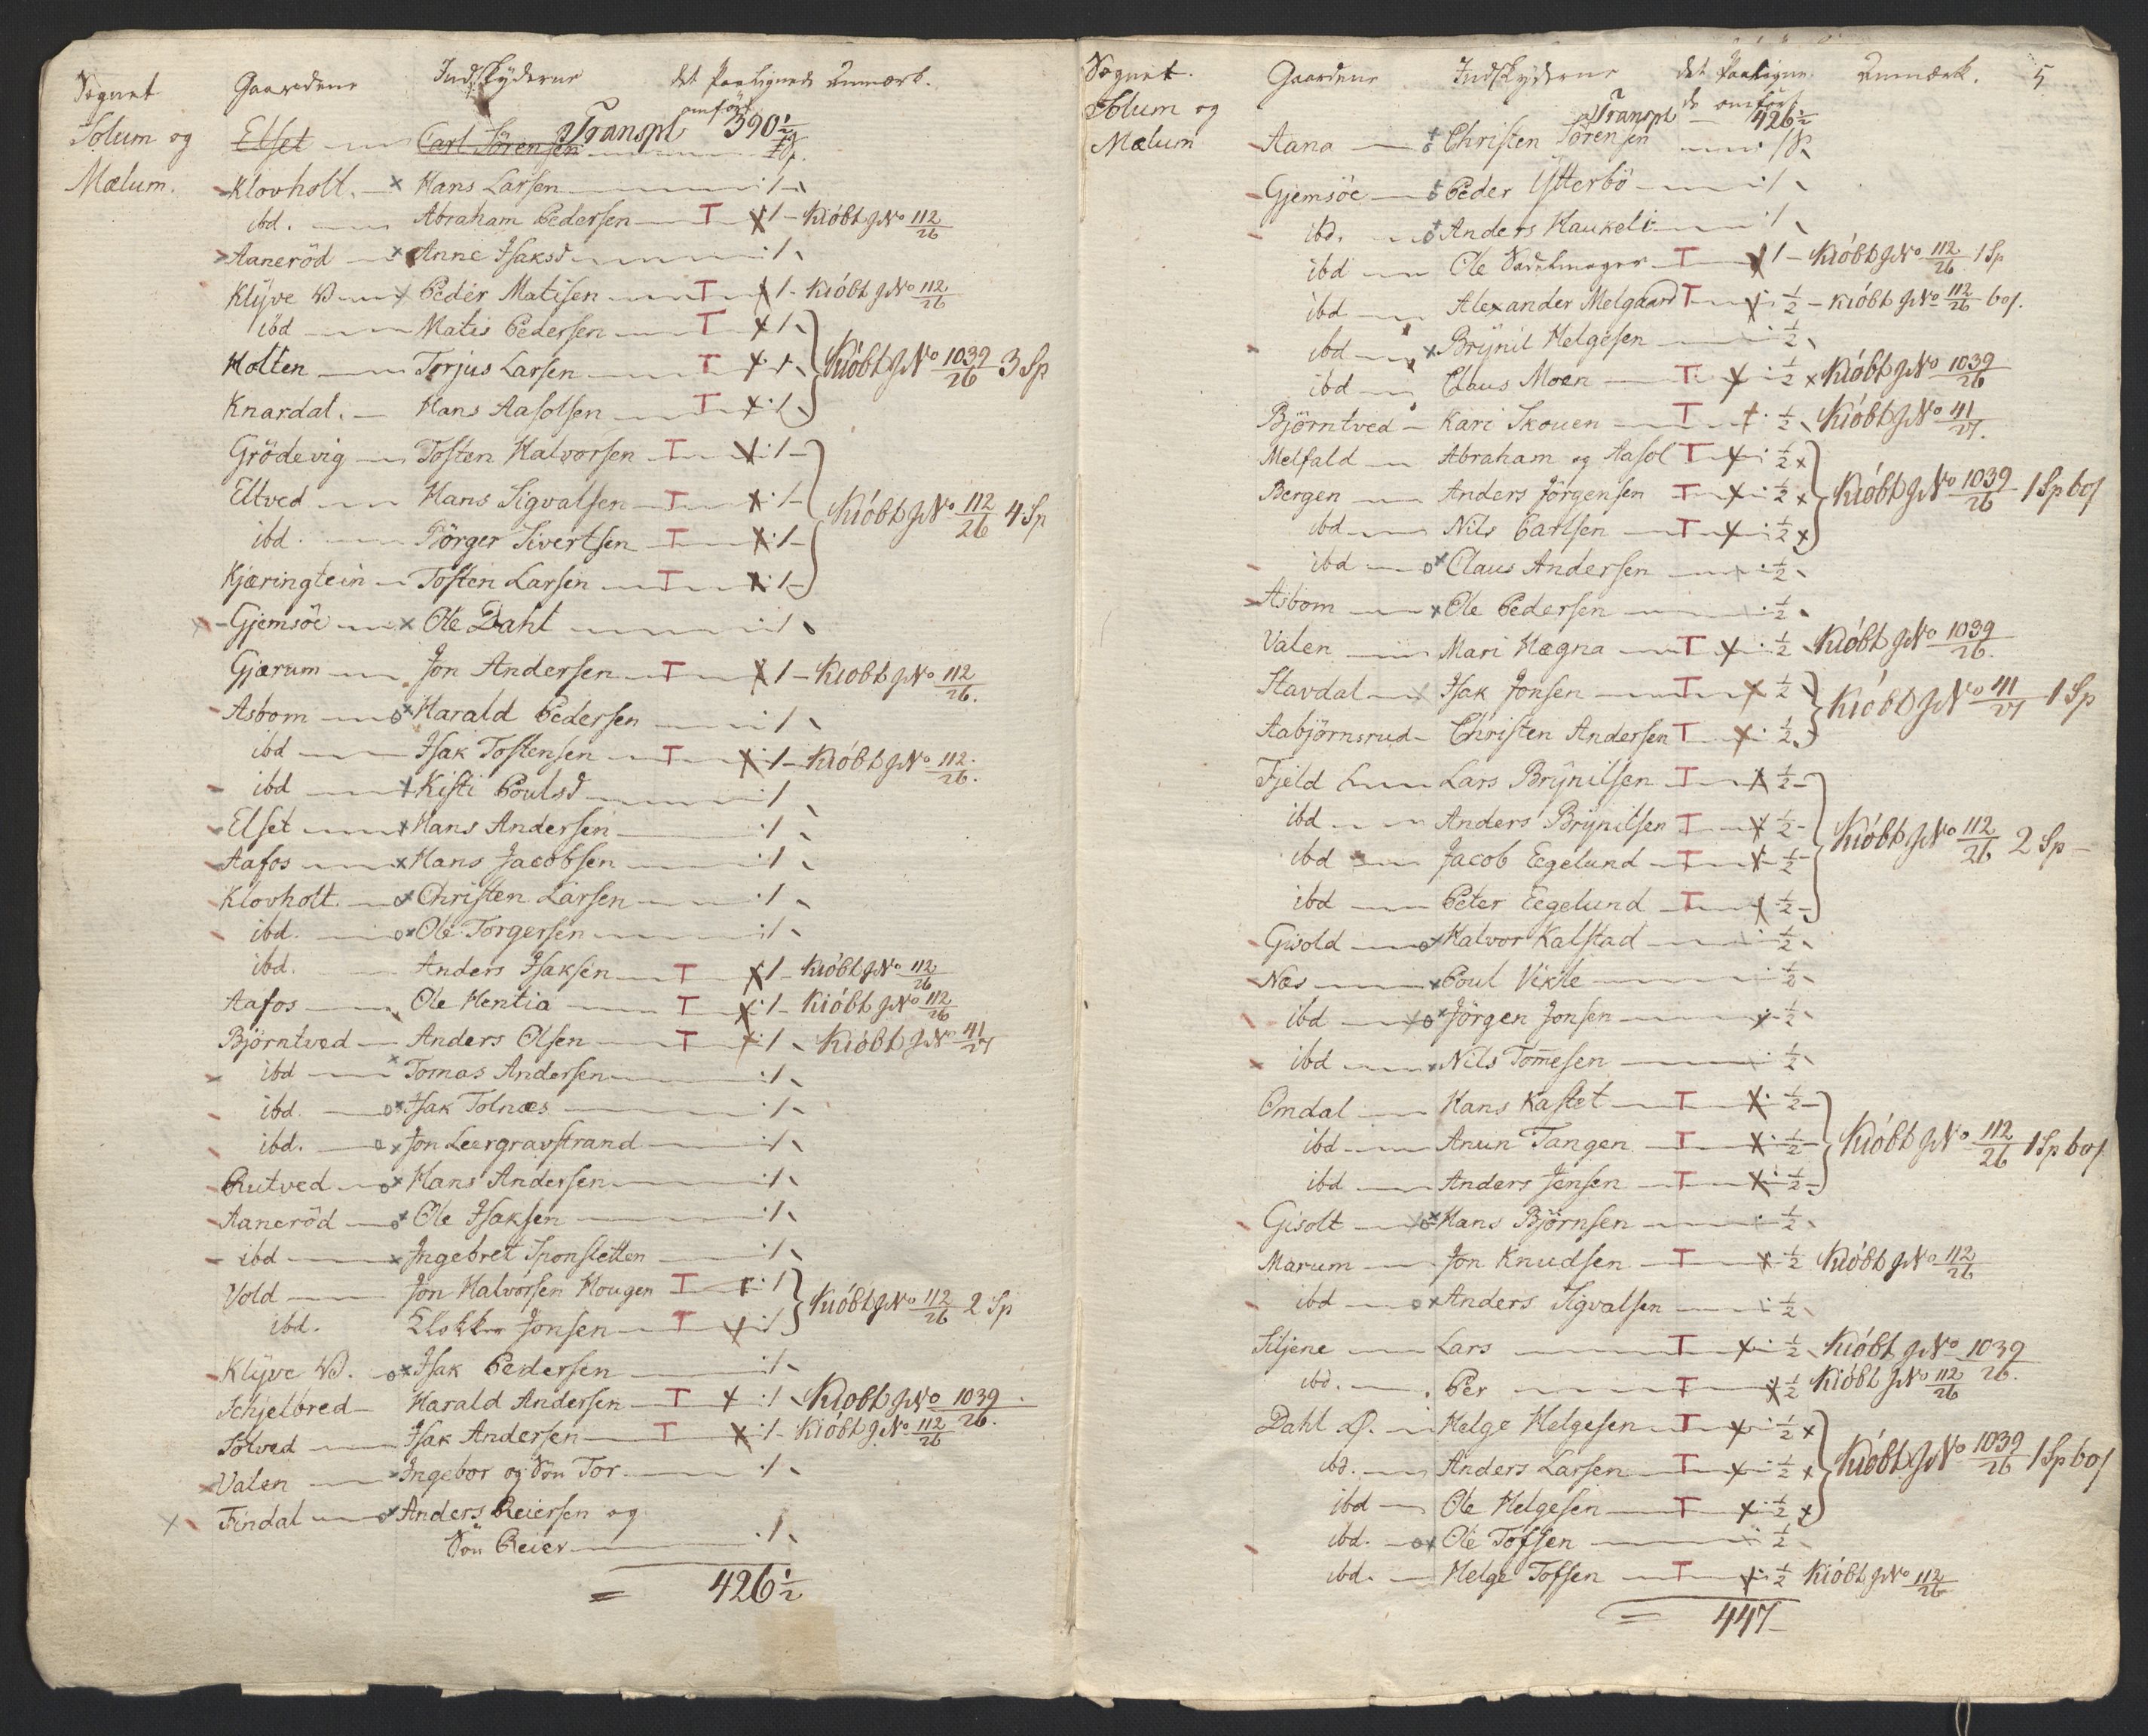 Sognet Gaardene Indskyderne det Paalignede Anmærk.
Solum og omført
Elset Carl Sörensen Transpl 390½
Mælum. Klovholt. × Hans Larsen 1
ibd. Abraham Pedersen T × 1 - Kióbt JNo 112/26
Aaneröd × Anne Isaksd 1
Klÿve × Peder Matisen T × 1 - Kióbt JNo 112/26
ibd Matis Pedersen T × 1
Holten Torjus Larsen T × 1 Kióbt JNo 1039/26 3 Sp
Knardal. Hans Aasolsen T × 1
Grödevig Tosten Halvorsen T × 1
Eltved Hans Sigvalsen T × 1 Kióbt JNo 112/26 4 Sp
ibd. Börger Sivertsen T × 1
Kjæringtein Tosten Larsen T × 1
Gjemsöe × Ole Dahl 1
Gjærum Jon Andersen T × 1 - Kiobt JNo 112/26.
Asbom o× Harald Pedersen 1
ibd Isak Tostensen T × 1 - Kióbt JNo 112/26.
ibd × Kisti Poulsd 1
Elset × Hans Andersen 1
Aafos × Hans Jacobsen 1
Klovholt. o× Christen Larsen 1
ibd. o× Ole Torgersen 1
ibd. Anders Isaksen T × 1 - Kióbt JNo 112/26
Aafos Ole Hentia T × 1 - Kióbt JNo 112/26
Björntved Anders Olsen T × 1 Kióbt JNo 41/27
ibd × Tomas Andersen 1
ibd. o× Isak Tolnæs 1
ibd. o× Jon Leergravstrand 1
Rutved o× Hans Andersen 1
Aaneröd o× Ole Isaksen 1
ibd × Ingebret Sponsletten 1
Vold Jon Halvorsen Hougen T × 1
ibd. Klokker Jonsen T × 1 Kióbt JNo 112/26 2 Sp
Klÿve o× Isak Pedersen 1
Schjelbred Harald Andersen T × 1 Kiobt JNo 1039/26.
Solved Isak Andersen T × 1 - Kióbt JNo 112/26
Valen × Ingebor og Sön Tor 1
× Findal o× Anders Reiersen og
Sön Reier 1
= 426½
Sognet. Gaardene Indskyderne det Paaligne- Anmærk. 5
Solum og de omført
Transpl 426½
Mælum Aana o Christen Sörensen 1 Sp
Gjemsöe o Peder Ÿtterbö 1
ibd. o Anders Haukeli 1
ibd Ole Sadelmager T × 1 - Kióbt JNo 112/26 1 Sp
ibd Alexander Melgaard T × ½ - Kióbt JNo 112/26 60ſ.
ibd × Brÿnil Helgesen ½
ibd Claus Moen T × ½ × Kióbt JNo 1039/26
Björntved Kari Skouen T × ½ Kióbt JNo 41/27.
Melfald Abraham og Aasol T × ½ ×
Bergen Anders Jörgensen T × ½ × Kióbt JNo 1039/26 1 Sp 60ſ
ibd Nils Carlsen T × ½ ×
ibd o× Claus Andersen ½
Asbom × Ole Pedersen ½
Valen Mari Hægna T × ½ Kióbt JNo 1039/26.
Stavdal Isak Jonsen T × ½ Kióbt JNo 41/27 1 Sp
Aabjörnsrud Christen Andersen T × ½
Fjeld L Lars Brÿnilsen T × ½
ibd Anders Brÿnilsen T × ½
ibd Jacob Eegelund T × ½ Kióbt JNo 112/26 2 Sp
ibd Peter Eegelund T × ½
Gisold o× Halvor Kalstad ½
Næs × Poul Vikle ½
ibd o× Jörgen Jonsen ½
ibd × Nils Tom̄esen ½
Omdal Hans Kastet T × ½
ibd Anun Tangen T × ½ Kióbt JNo 112/26 1 Sp 60ſ
ibd Anders Jensen T × ½
Gisolt o× Hans Björnsen ½
Marum Jon Knudsen T × ½ Kióbt JNo 112/26
ibd o× Anders Sigvalsen ½
Siljene Lars T × ½ Kióbt JNo 1039/26.
ibd. Per T × ½ Kióbt JNo 112/26
Dahl Ø. Helge Helgesen T × ½ ×
ibd. Anders Larsen T × ½ × Kióbt JNo 1039/26 1 Sp 60ſ
ibd Ole Helgesen T × ½ ×
ibd. o× Ole Tofsen ½
ibd. Helge Tofsen T × ½ Kióbt JNo 112/26
= 447